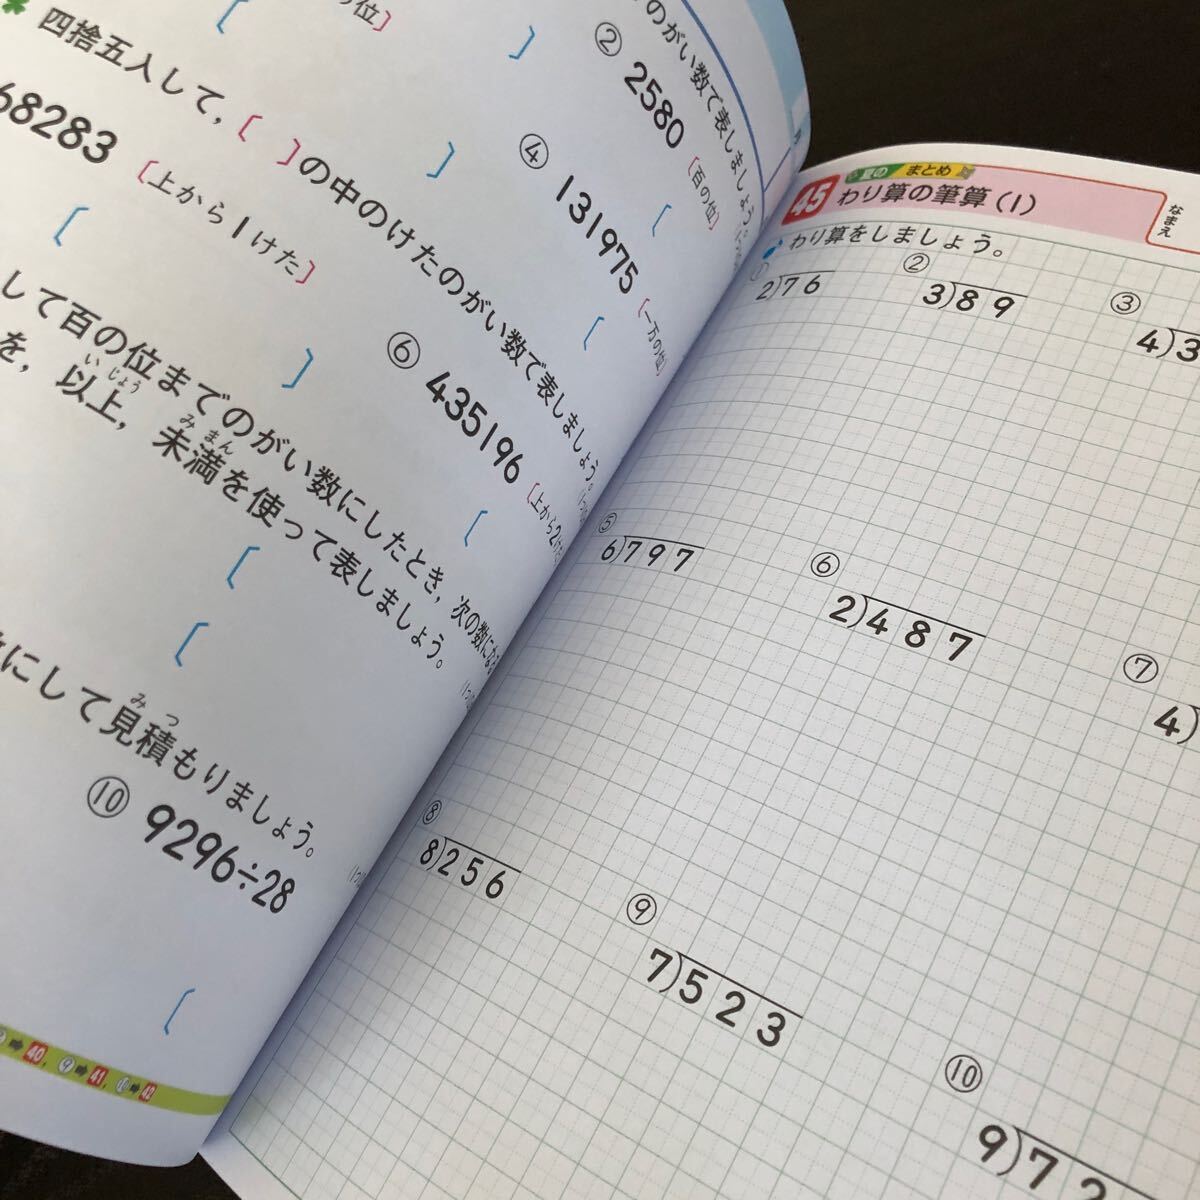 の位]
[ ]
のがい数で表しましょう。
② 2580 [百の位]
[
四捨五入して, [ ]の中のけたのがい数で表しましょう。
68283 [上から1けた]
[ ]
④ 131975 [一万の位]
[
⑥ 435196 [上から2けた
[
して百の位までのがい数にしたとき, 次の数になる
を, 以上, 未満を使って表しましょう。
いじょう
みまん
[
[
にして見積もりましょう。
みつ
⑩ 9296÷28
[
⇒40, ⑨⇒41, ⑩⇒42
夏の まとめ
45 わり算の筆算(1)
なまえ
わり算をしましょう。
① 2)76
② 3)89
③ 4)3
⑤ 6)797
⑥ 2)487
⑦ 4)
⑧ 8)256
⑨ 7)523
⑩ 9)72